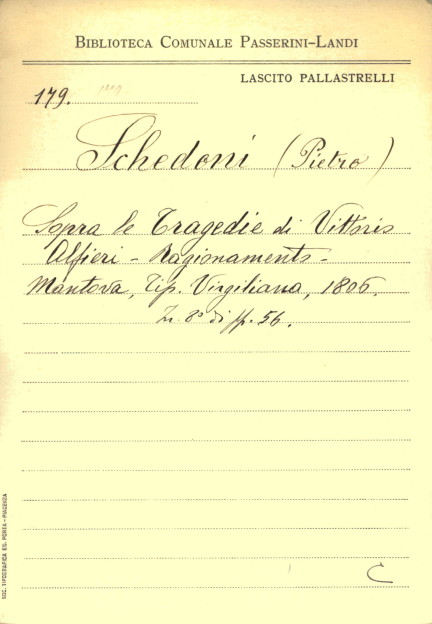 BIBLIOTECA COMUNALE PASSERINI-LANDI
LASCITO PALLASTRELLI
179.
Schedoni (Pietro)
Sopra le Tragedie di Vittorio
Alfieri - Ragionamento -
Mantova, Tip. Virgiliana, 1806.
In 8º di pp. 56.
C
SOC. TIPOGRAFICA ED. PORTA - PIACENZA